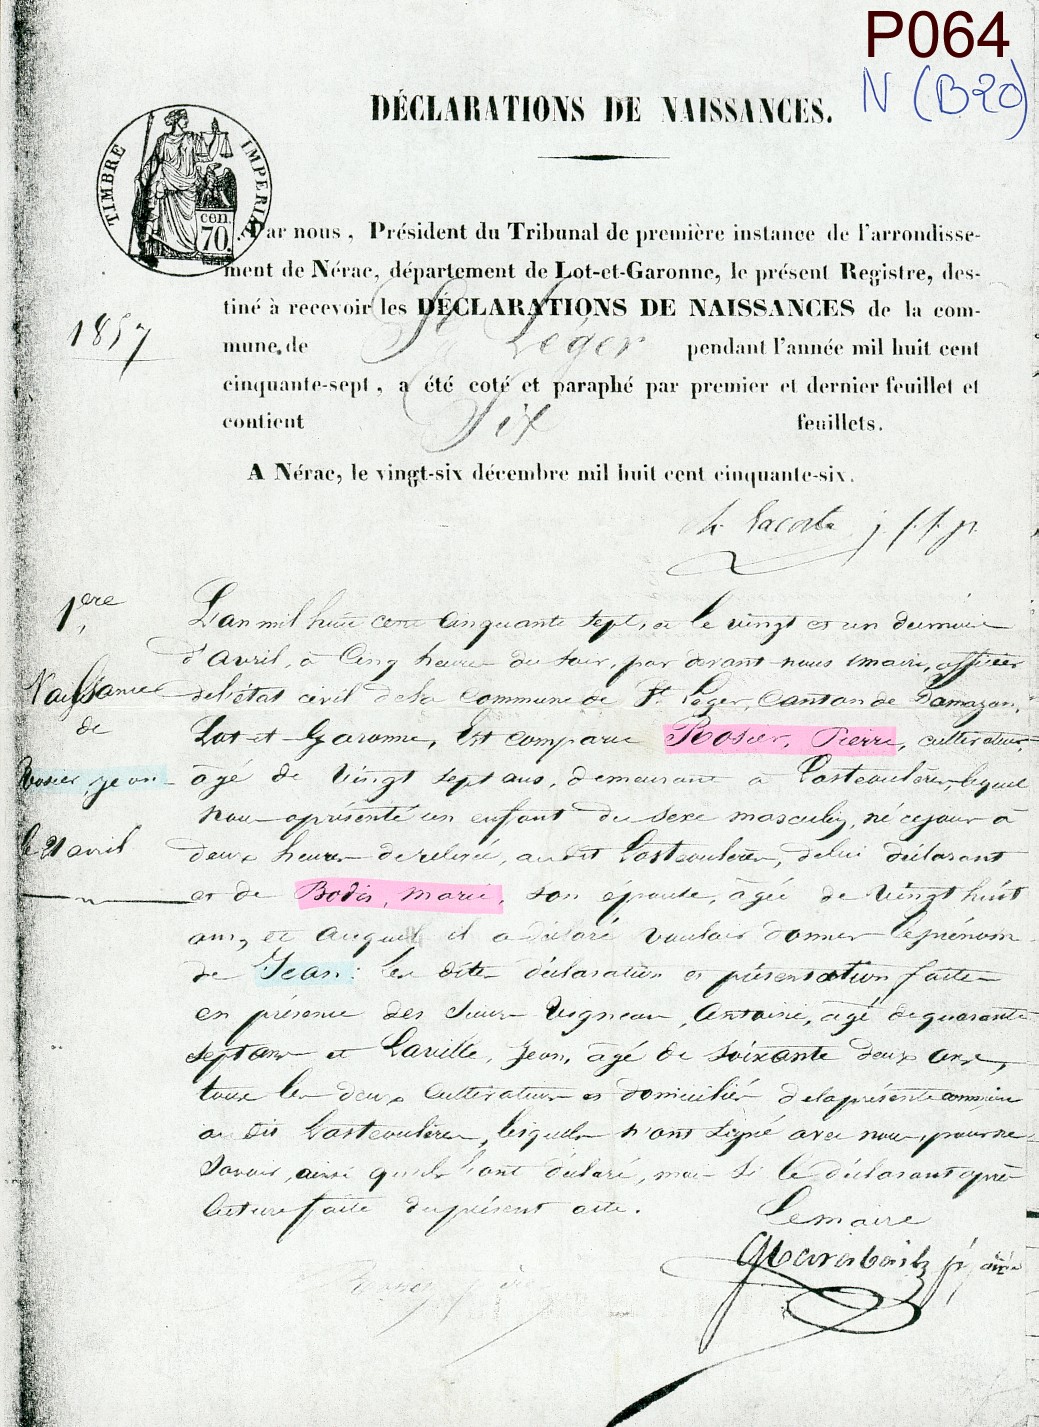 P064
N (B20)
DÉCLARATIONS DE NAISSANCES.
TIMBRE IMPERIAL
cen.
70.
Par nous, Président du Tribunal de première instance de l'arrondisse-
ment de Nérac, département de Lot-et-Garonne, le présent Registre, des-
tiné à recevoir les DÉCLARATIONS DE NAISSANCES de la com-
1857
mune de St Léger pendant l'année mil huit cent
cinquante-sept, a été coté et paraphé par premier et dernier feuillet et
contient Six feuillets.
A Nérac, le vingt-six décembre mil huit cent cinquante-six.
Lacoste j. f. f. p.
1ère
Naissance
de
Rosier, jean
le 21 avril
L'an mil huit cent cinquante sept, et le vingt et un du mois
d'Avril, à cinq heures du soir, par devant nous maire, officier
de l'état civil de la commune de St Léger, Canton de Damazan,
Lot et Garonne, Est comparu Rosier, Pierre, cultivateur,
âgé de vingt sept ans, demeurant à lequel
nous a présenté un enfant du sexe masculin, né ce jour à
deux heures de relevée, audit de lui déclarant
et de Bodin, marie, son épouse, âgée de vingt huit
ans, et auquel il a déclaré vouloir donner le prénom
de Jean: les dites déclaration et présentation faites
en présence des sieurs Vigneau, Antoine, âgé de quarante
sept ans et Laville, Jean, âgé de soixante deux ans,
tous les deux cultivateurs et domiciliés de la présente commune
au dit lesquels n'ont signé avec nous, pour ne
savoir, ainsi qu'ils l'ont déclaré, mais si le déclarant après
lecture faite du présent acte.
Le maire